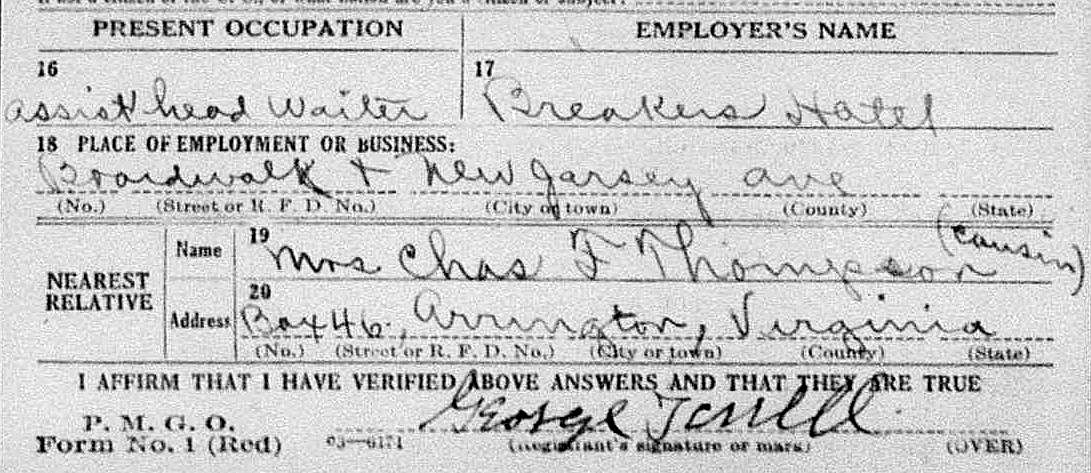 PRESENT OCCUPATION EMPLOYER'S NAME
16 17
assist head Waiter Breakers Hotel
18 PLACE OF EMPLOYMENT OR BUSINESS:
Boardwalk + New Jarsey ave
(No.) (Street or R. F. D. No.) (City or town) (County) (State)
19 (cousin)
Name Mrs Chas F Thompson
NEAREST RELATIVE
20
Address Box 46, Arrington, Virginia
(No.) (Street or R. F. D. No.) (City or town) (County) (State)
I AFFIRM THAT I HAVE VERIFIED ABOVE ANSWERS AND THAT THEY ARE TRUE
P. M. G. O. George Terrell
Form No. 1 (Red) 03—6171 (Registrant's signature or mark) (OVER)